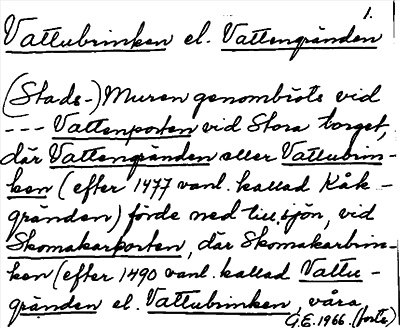 1.
Vattubrinken el. Vattengränden
(Stads-) Muren genombröts vid
--- Vattenporten vid Stora torget,
där Vattengränden eller Vattubrin-
ken (efter 1477 vanl. kallad Kåk-
gränden) förde ned till sjön, vid
Skomakarporten, där Skomakarbrin-
ken (efter 1490 vanl. kallad Vattu-
gränden el. Vattubrinken, våra
G.E. 1966. (forts.)